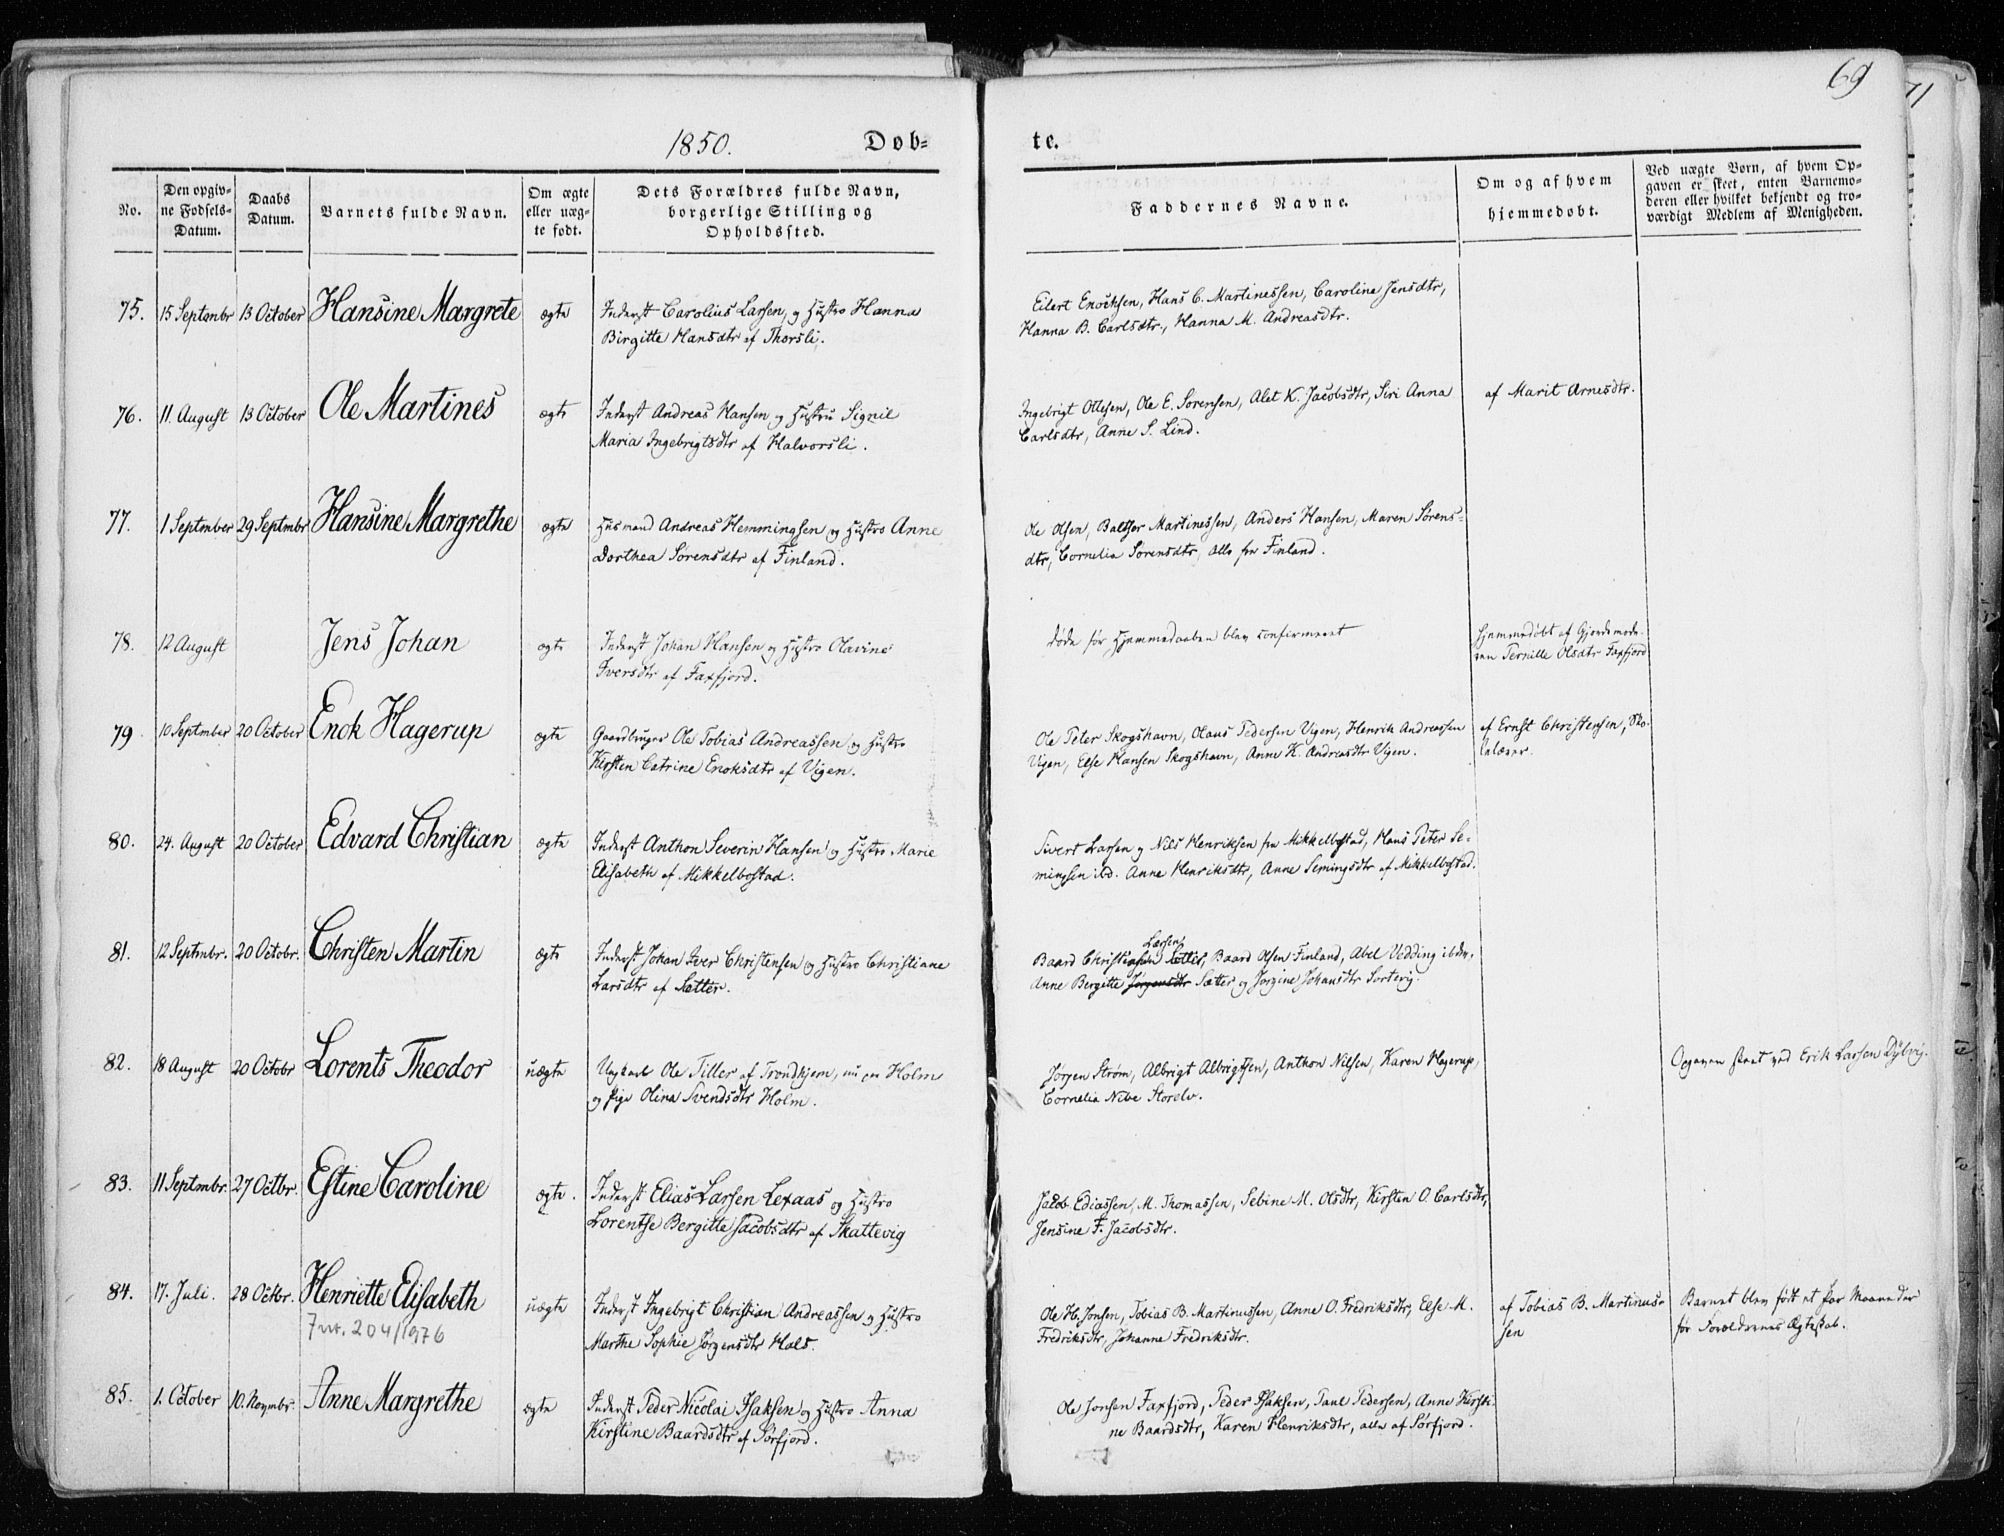 69
71
1850. Døb=
te.
No.
Den opgiv-
ne Fødsels-
Datum.
Daabs
Datum.
Barnets fulde Navn.
Om ægte
eller uæg-
te født.
Dets Forældres fulde Navn,
borgerlige Stilling og
Opholdssted.
Faddernes Navne.
Om og af hvem
hjemmedøbt.
Ved uægte Børn, af hvem Op-
gaven er skeet, enten Barnemo-
deren eller hvilket bekjendt og tro-
værdigt Medlem af Menigheden.
75. 15 Septembr 13 October Hansine Margrete ægte Inderst Carolius Larsen, og Hustro Hanna
Birgitte Hansdtr af Thorsli.
Eilert Enocksen, Hans C. Martinessen, Caroline Jensdtr,
Hanna B. Carlsdtr., Hanna M. Andreasdtr.
76. 11. August 13 October Ole Martines ægte Inderst Andreas Hansen og Hustru Signil
Maria Ingebrigtsdtr af Halvorsli.
Ingebrigt Ottesen, Ole E. Sørensen, Alet K. Jacobsdtr, Siri Anna
Carlsdtr, Anne S. Lind.
af Marit Arnesdtr.
77. 1 Septmber 29 Septmbr Hansine Margrethe ægte Husmand Andreas Hemmingsen og Hustro Anne
Dorthea Sørensdtr af Finland.
Ole Olsen, Baltser Martinessen, Anders Hansen, Maren Sørens=
dtr, Cornelia Sørensdtr, alle fra Finland.
78. 12 August Jens Johan ægte Inderst Johan Hansen og Hustro Olavine
Iversdtr af Faxfjord.
Døde før Hjemmedaaben blev confirmeret
Hjemmedøbt af Gjordemode-
ren Pernille Olsdtr Faxfjord
79 10 Septmber 20 October Enok Hagerup ægte Gaardbruger Ole Tobias Andreassen og Hustro
Kirsten Catrine Enoksdtr af Vigen.
Ole Peter Skogshavn, Olaus Pedersen Vigen, Henrik Andreassen
Vigen, Else Hansen Skogshavn, Anne K. Andreasdtr Vigen.
af Ernst Christensen, Sko-
lelærer.
80. 24. August 20 October Edvard Christian ægte Inderst Anthon Severin Hansen og Hustro Marie
Elisabeth af Mikkelbostad.
Sivert Larsen og Nils Henriksen fra Mikkelbostad, Hans Peter Se-
mingsen ibd. Anne Henriksdtr, Anne Semingsdtr af Mikkelbostad.
81. 12 Septmbr. 20 Octobr. Christen Martin ægte Inderst Johan Iver Christensen og Hustro Christiane
Larsdtr af Sætter.
Larsen
Baard Christiansen Sætter, Baard Olsen Finland, Abel Vedding ibdm,
Anne Bergitte Jørgensdtr Sætter og Jorgine Johansdtr Sortevig.
82. 18 August 20 Octobr Lorents Theodor uægte Ungkarl Ole Tiller af Trondhjem, nu paa Holm
og Pige Olina Svendsdtr Holm.
Jørgen Strøm, Albrigt Albrigtsen, Anthon Nilsen, Karen Hagerup,
Cornelia Nibe Storelv.
Opgaven skeet ved Erik Larsen Dybvig.
83. 11 Septmbr. 27 Octbr. Estine Caroline ægte. Inderst Elias Larsen Lexaas og Hustro
Lorentse Bergitte Jacobsdtr af Skattevig
Jacob Ediassen, M. Thomassen, Sebine M. Olsdtr, Kirsten O. Carlsdtr,
Jensine F. Jacobsdtr.
84. 17. Juli. 28 Octbr. Henriette Elisabeth uægte Inderst Ingebrigt Christian Andreassen og Hustro
Jnr. 204/1976
Marthe Sophie Jørgensdtr Hals.
Ole H. Jonsen, Tobias B. Martinussen, Anne O. Fredriksdtr, Else M.
Fredriksdtr, Johanne Fredriksdtr.
af Tobias B. Martinus=
sen
Barnet blev født et par Maaneder
før Forældrenes Ægteskab.
85. 1. October 10. Novmbr. Anne Margrethe ægte Inderst Peder Nicolai Isaksen og Hustro Anna
Kirstine Baardsdtr af Sørfjord.
Ole Jonsen Faxfjord, Peder Isaksen, Paul Pedersen, Anne Kirsti-
ne Baardsdtr, Karen Henriksdtr, alle af Sørfjord.